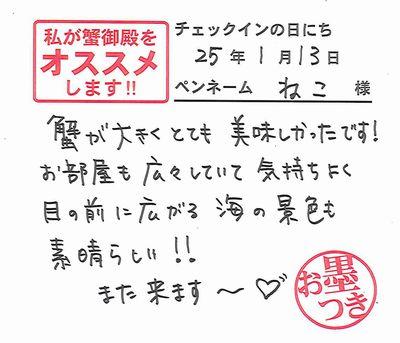 私が蟹御殿を
オススメ
します!!
チェックインの日にち
25年1月13日
ペンネーム ねこ 様
蟹が大きくとても美味しかったです!
お部屋も広々していて気持ちよく
目の前に広がる海の景色も
素晴らしい!!
また来ます〜♡
お墨つき